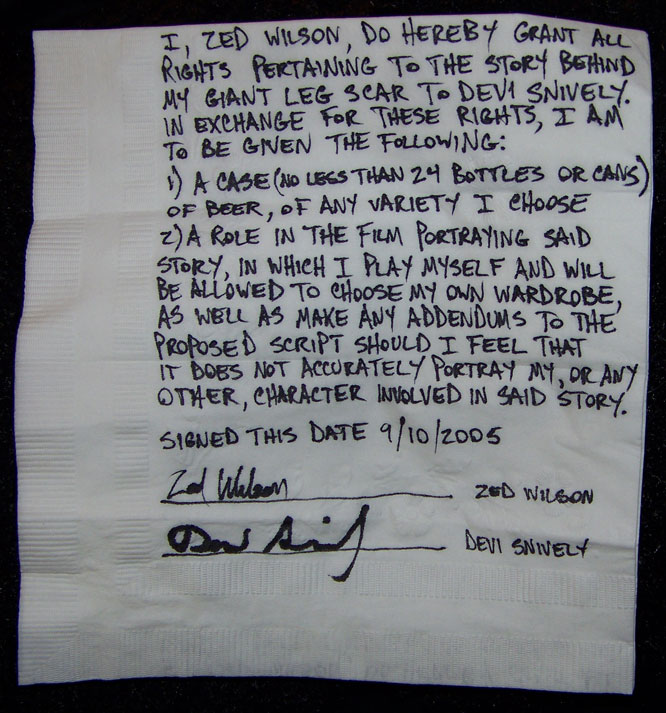 I, ZED WILSON, DO HEREBY GRANT ALL
RIGHTS PERTAINING TO THE STORY BEHIND
MY GIANT LEG SCAR TO DEVI SNIVELY.
IN EXCHANGE FOR THESE RIGHTS, I AM
TO BE GIVEN THE FOLLOWING:
1) A CASE (NO LESS THAN 24 BOTTLES OR CANS)
OF BEER, OF ANY VARIETY I CHOOSE
2) A ROLE IN THE FILM PORTRAYING SAID
STORY, IN WHICH I PLAY MYSELF AND WILL
BE ALLOWED TO CHOOSE MY OWN WARDROBE,
AS WELL AS MAKE ANY ADDENDUMS TO THE
PROPOSED SCRIPT SHOULD I FEEL THAT
IT DOES NOT ACCURATELY PORTRAY MY, OR ANY
OTHER, CHARACTER INVOLVED IN SAID STORY.
SIGNED THIS DATE 9/10/2005
Zed Wilson ZED WILSON
DEVI SNIVELY